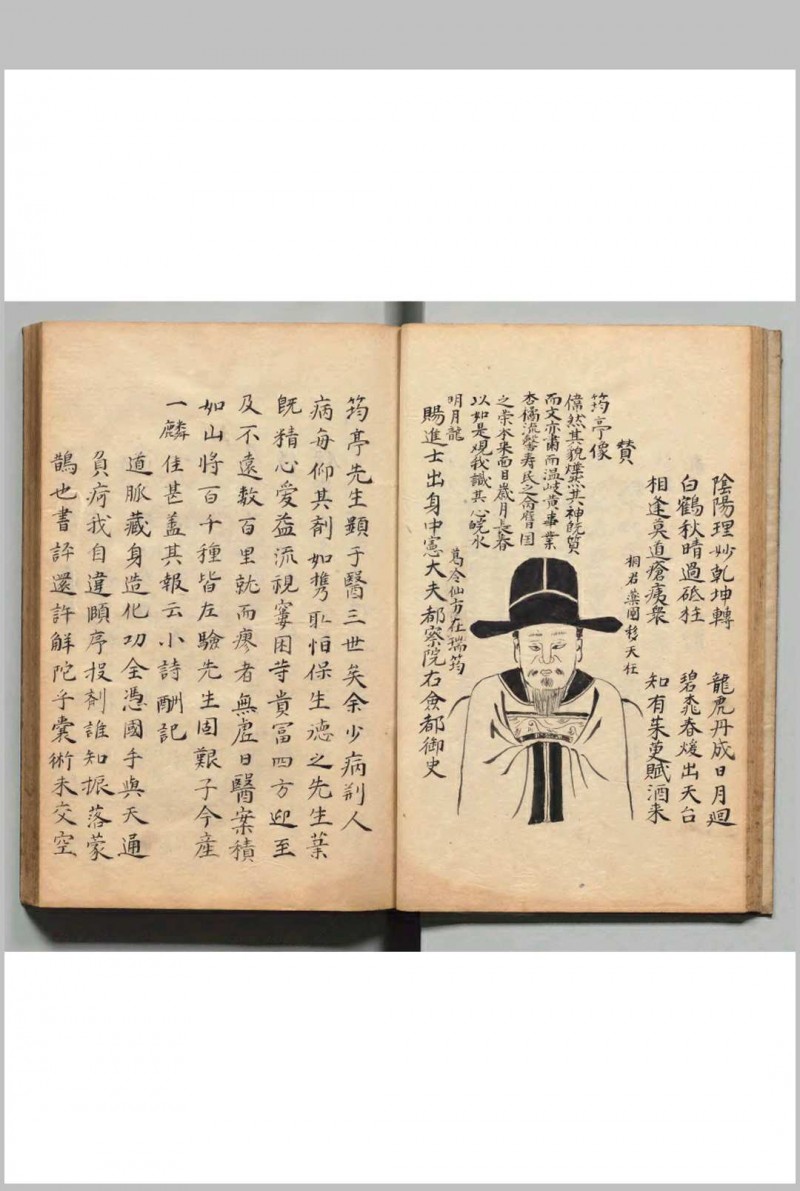 陰陽理妙乾坤轉 龍虎丹成日月廻
白鶴秋晴過砥柱 碧桃春煖出天台
相逢莫道瘡痍衆 知有朱更賦酒来
桐君藥國移天任
贊
筠亭像
偉然其貌煒然其神既質
而文亦肅而溫岐黃事業
杏橘流馨壽民之命曆日因
之崇本来面目歲月長春
以如是觀我識其心皖水
明月龍
葛令仙方在瑞筠
賜進士出身中憲大夫都察院右僉都御史
筠亭先生顕于醫三世矣余少病荆人
病每仰其剤如携取怕保生德之先生葉
既精心愛益流視寠困等貴冨四方迎至
及不遠数百里就而瘳者無虚日醫案積
如山將百千種皆左驗先生固艱子今産
一麟佳甚盖其報云小詩酬記
道脈藏身造化功全憑國手與天通
負疴我自違頤序投剤誰知振落蒙
鵲也書評還許解陀乎囊術未交空